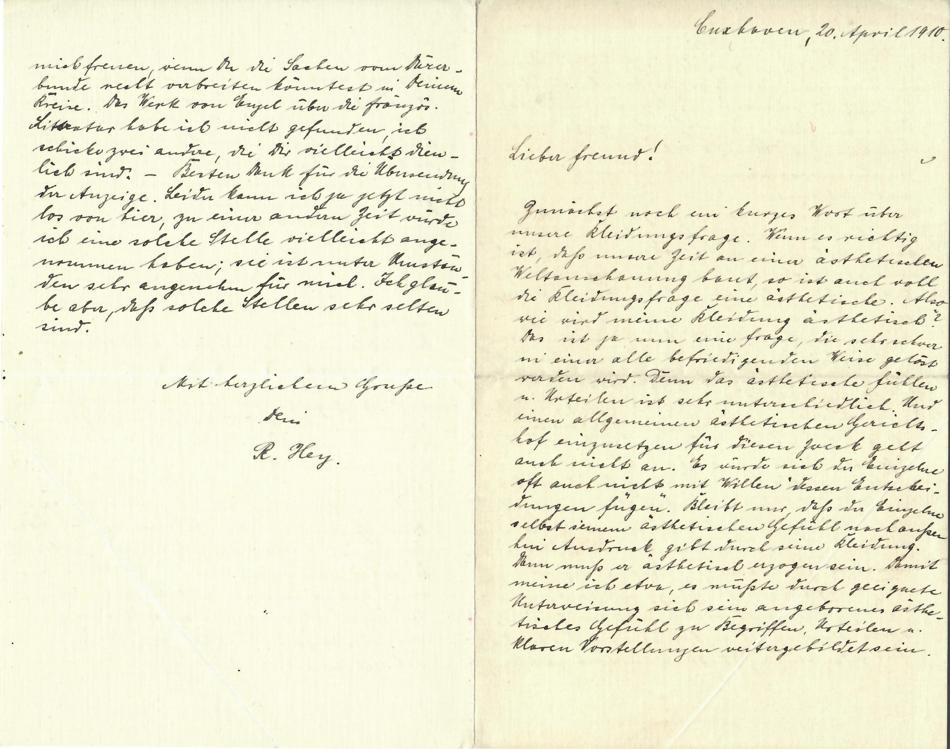 Cuxhaven, 20. April 1910.
Lieber Freund!
Zunächst noch ein kurzes Wort über
unsere Kleidungsfrage. Wenn es richtig
ist, daß unsere Zeit an einer ästhetischen
Weltanschauung baut, so ist auch voll
die Kleidungsfrage eine ästhetische. Also
wie wird meine Kleidung ästhetisch?
Das ist ja nun eine Frage, die sehr schwer
in einer alle befriedigenden Weise gelöst
werden wird. Denn das ästhetische Fühlen
u. Urteilen ist sehr unterschiedlich. Und
einen allgemeinen ästhetischen Gerichts-
hof einzusetzen für diesen Zweck geht
auch nicht an. Es würde sich der Einzelne
oft auch nicht mit Willen dessen Entschei-
dungen fügen. Bleibt nur, daß der Einzelne
selbst seinem ästhetischen Gefühl nach außen
hin Ausdruck gibt durch seine Kleidung.
Dann muß er ästhetisch erzogen sein. Damit
meine ich etwa, es müßte durch geeignete
Unterweisung sich sein angeborenes ästhe-
tisches Gefühl zu Begriffen, Urteilen u.
klaren Vorstellungen weitergebildet sein.
mich freuen, wenn Du die Sachen vom Dürer-
bunde recht verbreiten könntest in Deinem
Kreise. Das Werk von Engel über die französ.
Litteratur habe ich nicht gefunden, ich
schicke zwei andere, die Dir vielleicht dien-
lich sind. — Besten Dank für die Übersendung
der Anzeige. Leider kann ich ja jetzt nicht
los von hier, zu einer andern Zeit würde
ich eine solche Stelle vielleicht ange-
nommen haben; sie ist unter Umstän-
den sehr angenehm für mich. Ich glau-
be aber, daß solche Stellen sehr selten
sind.
Mit herzlichem Gruße
Dein
R. Hey.